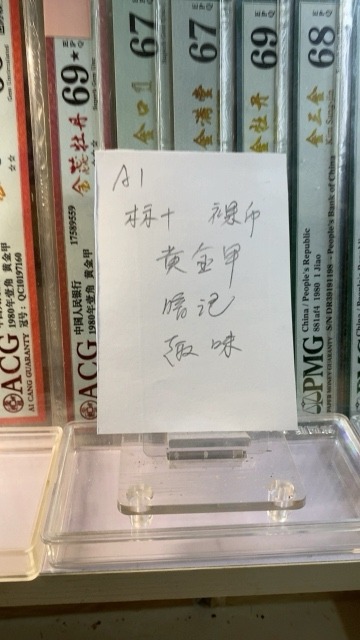 AI
标十 裸币
黄金甲
暗记
趣味
67
67
69
68
69★
EPQ
金牡丹
金满堂
中国人民银行
1980年壹角 黄金甲
17589559
ACG
1980年壹角 黄金甲
冠号: QC10197160
ACG
AI CANG GUARANTY
PMG
China / People's Republic
881af4 1980 1 Jiao
S/N DR39191198 - People's Bank of China
PAPER MONEY GUARANTY